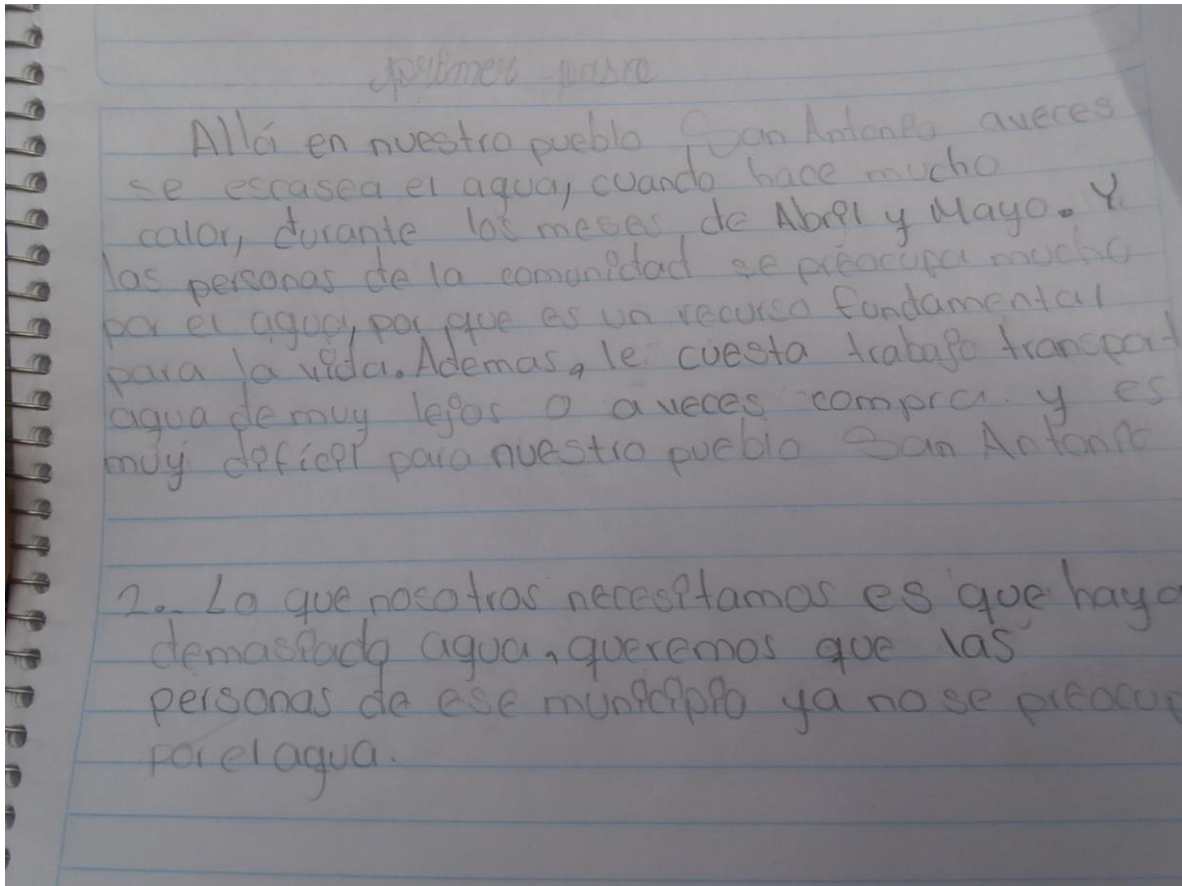 primer paso
Allá en nuestro pueblo San Antonio aveces
se escasea el agua, cuando hace mucho
calor, durante los meses de Abril y Mayo. Y
las personas de la comunidad se preocupa mucho
por el agua, por que es un recurso fundamental
para la vida. Ademas, le cuesta trabajo transport
agua de muy lejos o aveces compra y es
muy dificil para nuestro pueblo San Antonio
2.- Lo que nosotros necesitamos es que haya
demasiado agua, queremos que las
personas de ese municipio ya no se preocup
por el agua.